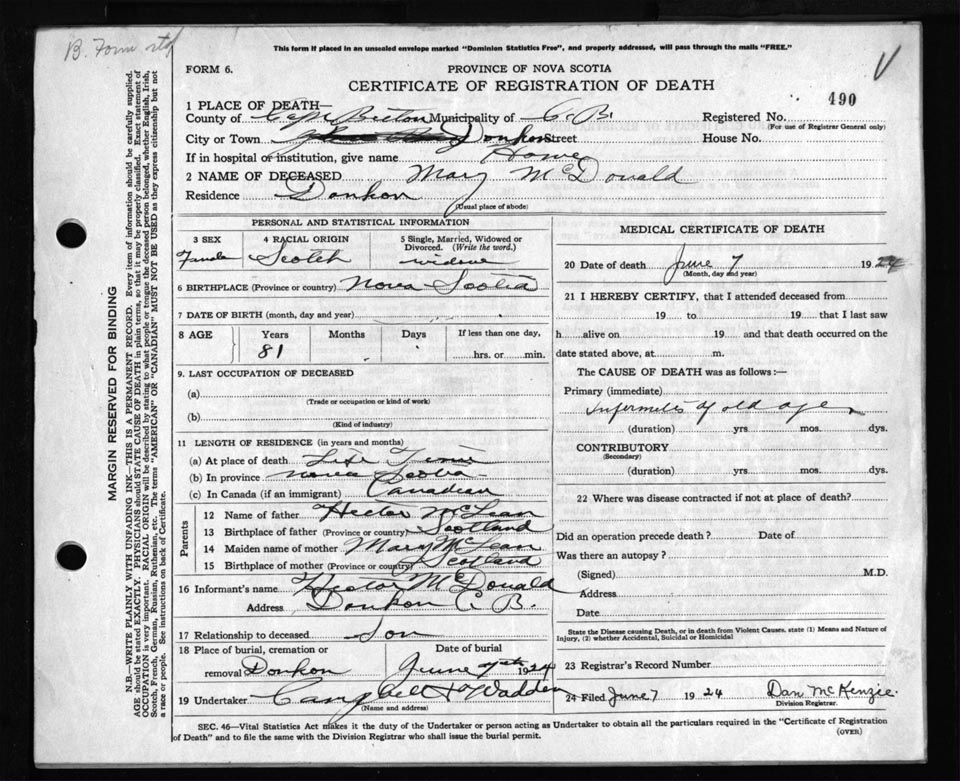 B. Form
This form if placed in an unsealed envelope marked "Dominion Statistics Free", and properly addressed, will pass through the mails "FREE."
FORM 6.
PROVINCE OF NOVA SCOTIA
CERTIFICATE OF REGISTRATION OF DEATH
490
1 PLACE OF DEATH—
County of Cape Breton Municipality of C. B. Registered No.
(For use of Registrar General only)
City or Town Donkon Street House No.
If in hospital or institution, give name Home
2 NAME OF DECEASED Mary McDonald
Residence Donkon
(Usual place of abode)
PERSONAL AND STATISTICAL INFORMATION
3 SEX 4 RACIAL ORIGIN 5 Single, Married, Widowed or Divorced. (Write the word.)
Female Scotch widow
6 BIRTHPLACE (Province or country) Nova Scotia
7 DATE OF BIRTH (month, day and year)
8 AGE Years Months Days If less than one day,
81 hrs. or min.
9. LAST OCCUPATION OF DECEASED
(a)
(Trade or occupation or kind of work)
(b)
(Kind of industry)
11 LENGTH OF RESIDENCE (in years and months)
(a) At place of death Life Time
(b) In province Nova Scotia
(c) In Canada (if an immigrant) Canadian
Parents
12 Name of father Hector McLean
13 Birthplace of father (Province or country) Scotland
14 Maiden name of mother Mary McLean
15 Birthplace of mother (Province or country) Scotland
16 Informant's name Hector McDonald
Address Donkon C. B.
17 Relationship to deceased Son
18 Place of burial, cremation or removal Donkon
Date of burial
June 1924
19 Undertaker Campbell & Wadden
(Name and address)
MEDICAL CERTIFICATE OF DEATH
20 Date of death June 7 1924
(Month, day and year)
21 I HEREBY CERTIFY, that I attended deceased from
19 to 19 that I last saw
h alive on 19 and that death occurred on
date stated above, at m.
The CAUSE OF DEATH was as follows:—
Primary (immediate)
Infirmities of old age
(duration) yrs. mos. dys.
CONTRIBUTORY
(Secondary)
(duration) yrs. mos. dys.
22 Where was disease contracted if not at place of death?
Did an operation precede death? Date of
Was there an autopsy?
(Signed) M.D.
Address
Date
State the Disease causing Death, or in death from Violent Causes, state (1) Means and Nature of
Injury, (2) whether Accidental, Suicidal or Homicidal
23 Registrar's Record Number
24 Filed June 7 1924 Dan McKenzie.
Division Registrar.
SEC. 46—Vital Statistics Act makes it the duty of the Undertaker or person acting as Undertaker to obtain all the particulars required in the "Certificate of Registration
of Death" and to file the same with the Division Registrar who shall issue the burial permit.
(OVER)
MARGIN RESERVED FOR BINDING
N.B.—WRITE PLAINLY WITH UNFADING INK—THIS IS A PERMANENT RECORD. Every item of information should be carefully supplied.
AGE should be stated EXACTLY. PHYSICIANS should STATE CAUSE OF DEATH in plain terms, so that it may be properly classified. Exact statement of
OCCUPATION is very important. RACIAL ORIGIN will be described by stating to what people or tongue the deceased person belonged, whether English, Irish,
Scotch, French, German, Russian, Ruthenian, etc. The terms "AMERICAN" or "CANADIAN" MUST NOT BE USED as they express citizenship but not
a race or people. See instructions on back of Certificate.